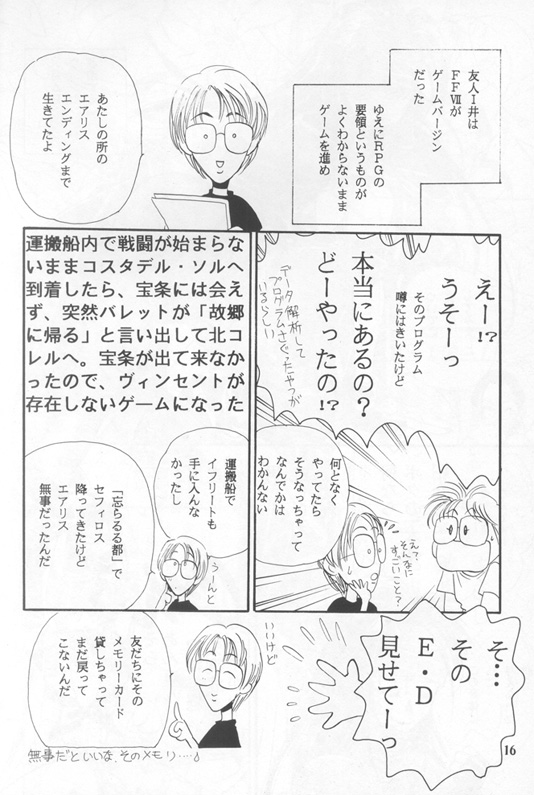 友人I井は
FFⅦが
ゲームバージン
だった
ゆえにRPGの
要領というものが
よくわからないまま
ゲームを進め
あたしの所の
エアリス
エンディングまで
生きてたよ
えー!?
うそーっ
そのプログラム
噂にはきいたけど
本当にあるの?
どーやったの!?
データ解析して
プログラムさぐったやつが
いるらしい
運搬船内で戦闘が始まらな
いままコスタデル・ソルへ
到着したら、宝条には会え
ず、突然バレットが「故郷
に帰る」と言い出して北コ
レルへ。宝条が出て来なか
ったので、ヴィンセントが
存在しないゲームになった
何となく
やってたら
そうなっちゃって
なんでかは
わかんない
え?
そんなに
すごいこと?
運搬船で
イフリートも
手に入んな
かったし
うーんと
「忘らるる都」で
セフィロス
降ってきたけど
エアリス
無事だったんだ
そ…
その
E・D
見せてーっ
いいけど
友だちにその
メモリーカード
貸しちゃって
まだ戻って
こないんだ
無事だといいな、そのメモリ……♪
16